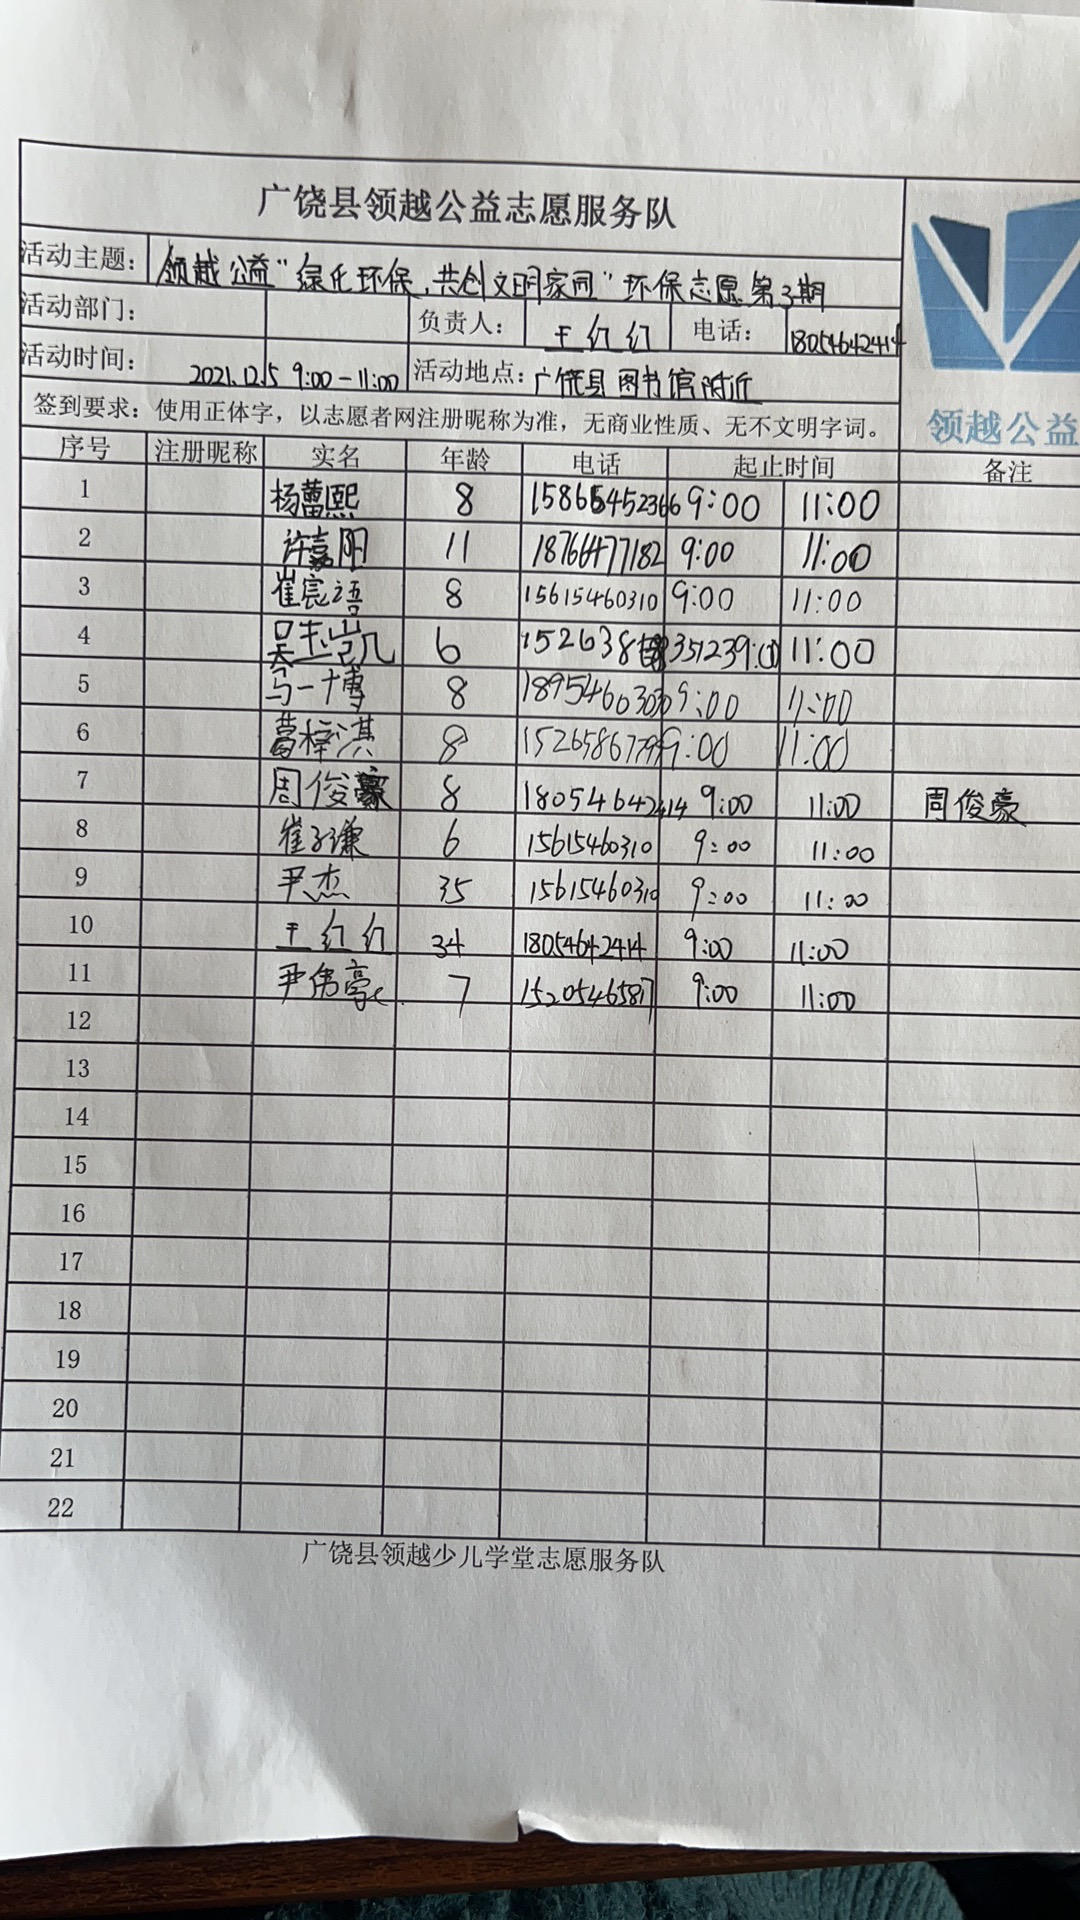 广饶县领越公益志愿服务队
活动主题： 领越公益“绿化环保，共创文明家园”环保志愿第3期
活动部门： 负责人： 王红红 电话： 18054642414
活动时间： 2021.12.5 9:00-11:00 活动地点：广饶县图书馆附近
签到要求：使用正体字，以志愿者网注册昵称为准，无商业性质、无不文明字词。
领越公益
序号 注册昵称 实名 年龄 电话 起止时间 备注
1 杨蕾熙 8 15865452366 9:00 11:00
2 许嘉阳 11 18766477182 9:00 11:00
3 崔宸语 8 15615460310 9:00 11:00
4 凯 6 152638 35123 9:00 11:00
5 马一博 8 18954603030 9:00 11:00
6 葛梓淇 8 15265867799 9:00 11:00
7 周俊豪 8 18054642414 9:00 11:00 周俊豪
8 崔子谦 6 15615460310 9:00 11:00
9 尹杰 35 15615460310 9:00 11:00
10 王红红 34 18054642414 9:00 11:00
11 尹伟豪 7 15205465817 9:00 11:00
12
13
14
15
16
17
18
19
20
21
22
广饶县领越少儿学堂志愿服务队